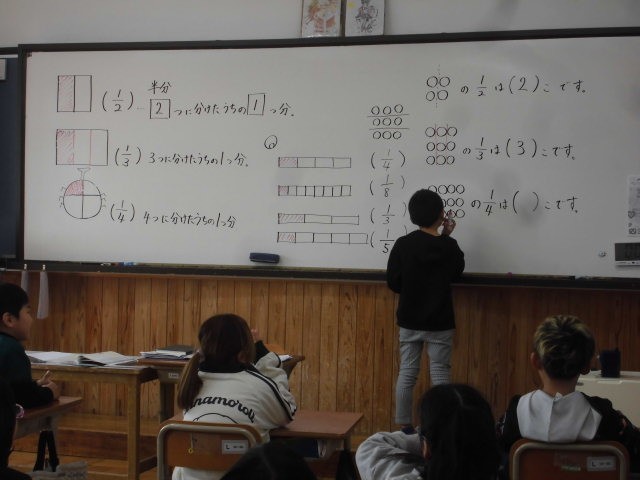 (1/2) … 半分
2つに分けたうちの1つ分。
(1/3) 3つに分けたうちの1つ分。
(1/4) 4つに分けたうちの1つ分
(1/4)
(1/8)
(1/3)
(1/5
の1/2は(2)こです。
の1/3は(3)こです。
の1/4は( )こです。